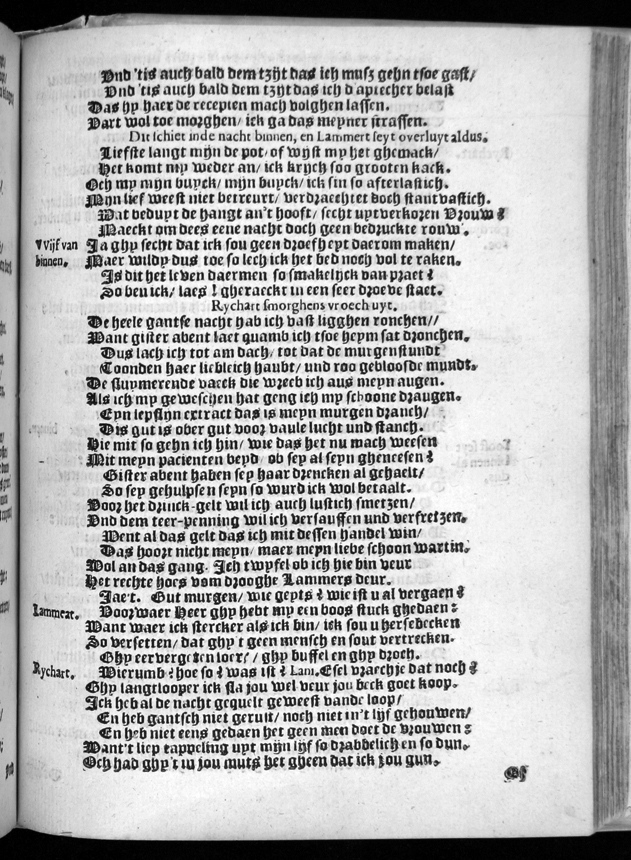 Vnd 'tis auch bald dem tzijt das ich musz gehn tsoe gast/
Vnd 'tis auch bald dem tzijt das ich d'aptecher belast
Das hy haer de recepten mach volghen lassen.
Vart wol toe morghen/ ick ga das meyner strassen.
Dit schiet inde nacht binnen, en Lammert seyt overluyt aldus.
Liefste langt mijn de pot/ of wijst my het ghemack/
Het komt my weder an/ ick krijch soo grooten kack.
Och my mijn buyck/ mijn buyck/ ick sin so afterlastich.
Mijn lief weest niet betreurt/ verdraechtet doch stantvastich.
Wat beduyt de hangt an't hooft/ secht uytverkoren Vrouw?
Maeckt om dees eene nacht doch geen bedruckte rouw.
Wijf van binnen. Ja ghy secht dat ick sou geen droefheyt daerom maken/
Maer wildy dus toe so lech ick het bed noch vol te raken.
Is dit het leven daermen so smakelijck van praet?
So ben ick/ laes! gheraeckt in een seer droeve staet.
Rychart smorghens vroech uyt.
De heele gantse nacht hab ich vast ligghen ronchen//
Want gister abent laet quamb ich tsoe heym sat dronchen.
Dus lach ich tot am dach/ tot dat de murgenstundt
Toonden haer liebleich haubt/ und roo gebloosde mundt.
De sluymerende vaeck die wreeb ich aus meyn augen.
Als ich my geweschen hat geng ich my schoone draugen.
Eyn lepslijn extract das is meyn murgen dranch/
Dis gut is ober gut voor vaule lucht und stanch.
Hie mit so gehn ich hin/ wie das het nu mach weesen
Mit meyn pacienten beyd/ ob sey al seyn gheneesen?
Gister abent haben sey haar drencken al gehaelt/
So sey gehulpsen seyn so wurd ick wol betaalt.
Voor het drinck-gelt wil ich auch lustich smetzen/
Vnd dem teer-penning wil ich versauffen und verfretzen.
Went al das gelt das ich mit dessen handel win/
Das hoort nicht meyn/ maer meyn liebe schoon wartin.
Wol an das gang. Ich twyfel ob ich hie bin veur
Het rechte hoes vom drooghe Lammers deur.
Jaet. Gut murgen/ wie geyts? wie ist u al vergaen?
Lammert. Voorwaer Heer ghy hebt my een boos stuck ghedaen:
Want waer ick stercker als ick bin/ ick sou u hersebecken
So versetten/ dat ghy't geen mensch en sout vertrecken.
Ghy eervergeten loer/ ghy buffel en ghy droch.
Rychart. Wierumb? hoe so? was ist? Lam. Esel vraechje dat noch?
Ghy langtlooper ick sla jou wel veur jou beck goet koop.
Ick heb al de nacht gequelt geweest vande loop/
En heb gantsch niet gerust/ noch niet in't lijf gehouwen/
En heb niet eens gedaen het geen men doet de vrouwen:
Want't liep tappeling uyt mijn lijf so drabbelich en so dun.
Och had ghy't in jou muts het gheen dat ick jou gun.